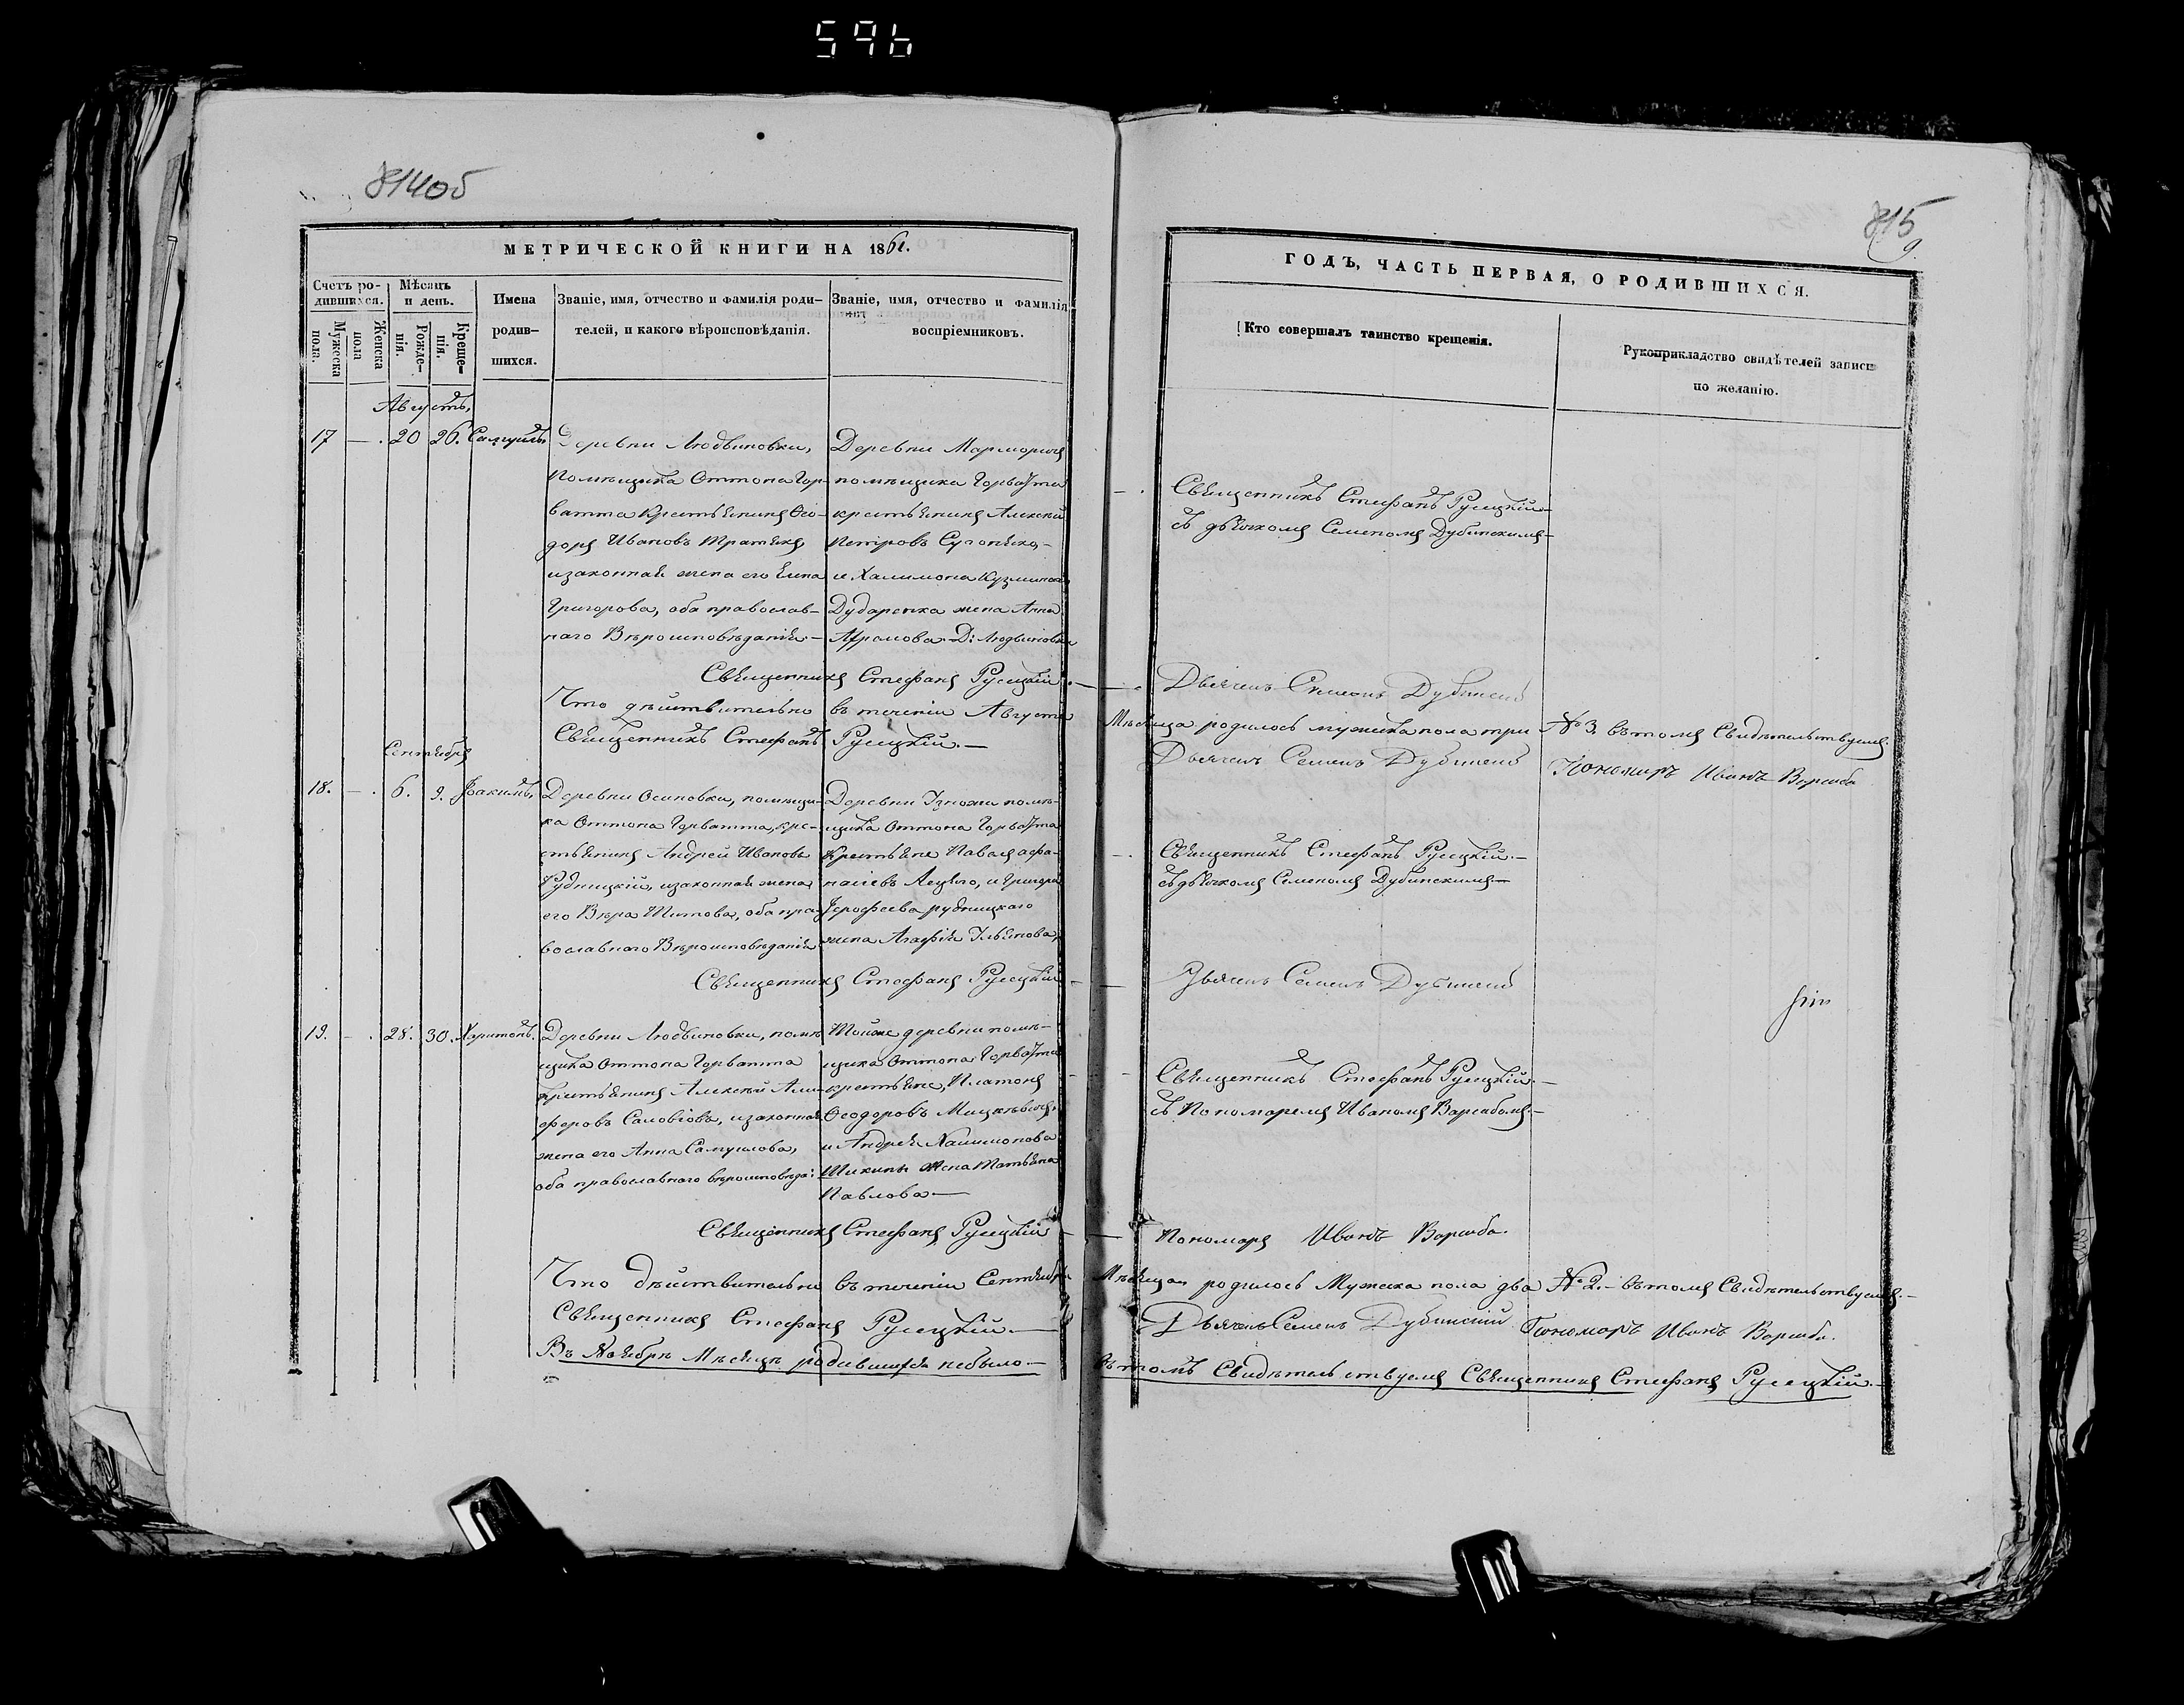 596
814об
815
9
МЕТРИЧЕСКОЙ КНИГИ НА 1861.
ГОДЪ, ЧАСТЬ ПЕРВАЯ, О РОДИВШИХСЯ.
Счетъ ро-
дившихся.
Мужеска пола.
Женска пола
Мѣсяцъ
и день.
Рожде-
нія.
Креще-
нія.
Имена
родив-
шихся.
Званіе, имя, отчество и фамилія роди-
телей, и какого вѣроисповѣданія.
Званіе, имя, отчество и фамилія
воспріемниковъ.
Кто совершалъ таинство крещенія.
Рукоприкладство свидѣтелей записи
по желанію.
Августъ,
17 — . 20 26. Самуилъ
Деревни Людвиновки,
Помѣщика Оттона Гор-
ватта Крестьянинъ Ѳео-
доръ Ивановъ
изаконная жена его Елена
Григорова, оба православ-
наго Вѣроисповѣданія.—
Деревни
помѣщика Горватта
крестьянинъ Алексѣй
Петровъ
и Халимона Кузминова
Дударенка жена Анна
Д: Людвиновки
Священникъ Стефанъ Русецкій
съ дьячкомъ Семеномъ Дубинскимъ—
Священникъ Стефанъ Русецкій.—
Дьячекъ Семенъ Дубинскій
Что дѣйствительно въ теченіи Августа Мѣсяца родилось мужеска пола три № 3. въ томъ Свидѣтельствуемъ.
Священникъ Стефанъ Русецкій.—
Дьячекъ Семенъ Дубинскій
Пономарь Иванъ Варава
Сентября
18. — . 6. 9. Іоакимъ,
Деревни Осиповки, помѣщи-
ка Оттона Горватта, кре-
стьянинъ Андрей Ивановъ
Рудницкій, изаконная жена
его Вѣра Титова, оба пра-
вославнаго Вѣроисповѣданія
Деревни помѣ-
щика Оттона Горватта
Крестьяне Павелъ Афа-
насіевъ и Григорія
Іерофеева рудницкаго
жена Агафія Ильинова,
Священникъ Стефанъ Русецкій.—
съ дьячкомъ Семеномъ Дубинскимъ—
Священникъ Стефанъ Русецкій
Дьячекъ Семенъ Дубинскій
19. — . 28. 30. Харитонъ.
Деревни Людвиновки, помѣ
щика Оттона Горватта
Крестьянинъ Алексѣй Али-
феровъ изаконная
жена его Анна Самуилова,
оба православнаго вѣроисповѣда:
Тойже деревни помѣ-
щика Оттона Горватта
крестьяне, Платонъ
Ѳеодоровъ
и Андрея Халимонова
жена Татьяна
Павлова—
Священникъ Стефанъ Русецкій.—
съ Пономаремъ Иваномъ Варавомъ.—
Священникъ Стефанъ Русецкій
Пономарь Иванъ Варава.
Что дѣйствительно въ теченіи Сентября Мѣсяца родилось Мужеска пола два № 2.— въ томъ Свидѣтельствуемъ.—
Священникъ Стефанъ Русецкій.—
Дьячекъ Семенъ Дубинскій
Пономарь Иванъ Варава.
Въ Ноябрѣ Мѣсяцѣ родившихся небыло— въ томъ Свидѣтельствуемъ Священникъ Стефанъ Русецкій.—